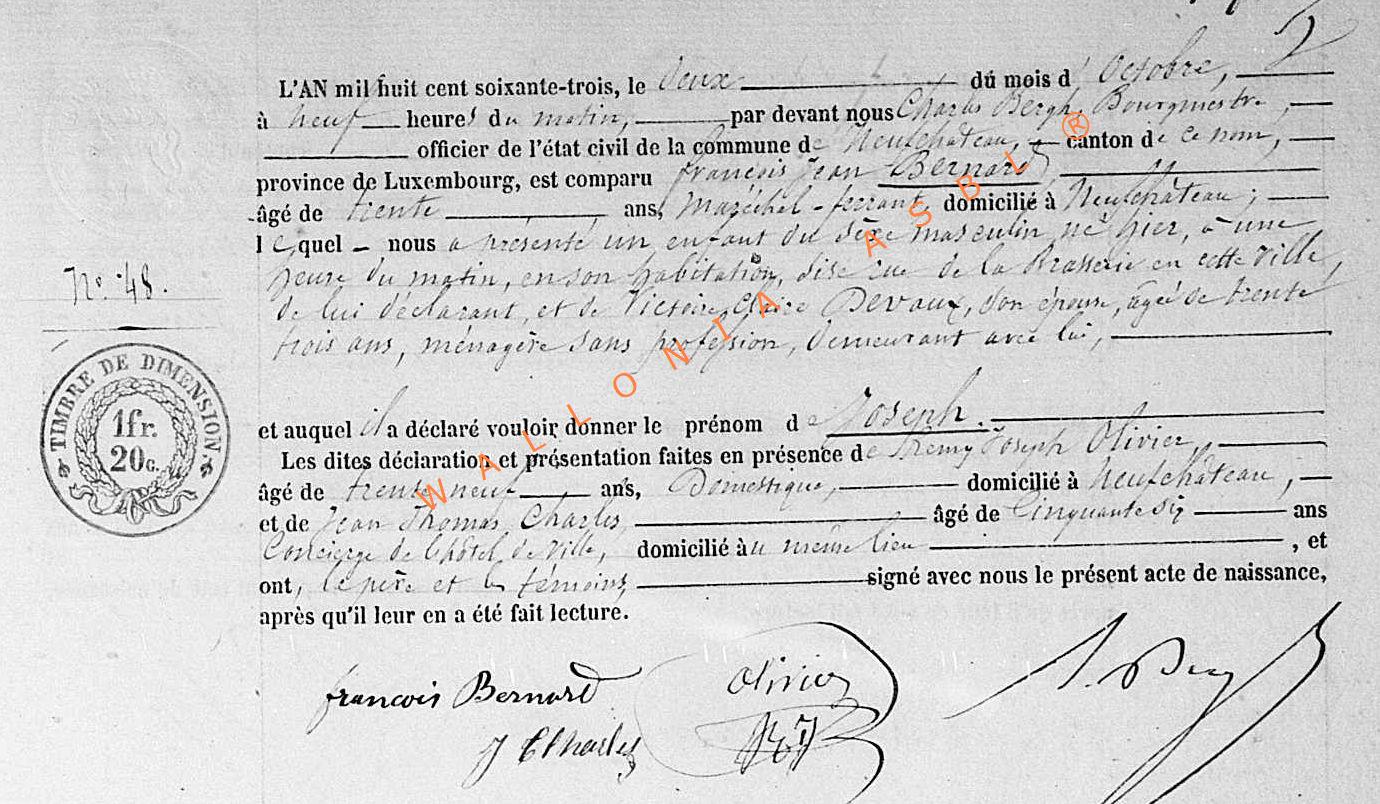 2
L'AN mil huit cent soixante-trois, le deux du mois d'Octobre,
à neuf heures du matin, par devant nous Charles Bergh, Bourgmestre,
officier de l'état civil de la commune de Neufchâteau, canton de ce nom,
province de Luxembourg, est comparu françois Jean Bernard
âgé de trente ans, Maréchal-ferrant, domicilié à Neufchâteau;
lequel nous a présenté un enfant du sèxe masculin, né hier, à une
heure du matin, en son habitation, sise rue de la Brasserie en cette ville,
de lui déclarant, et de Victoire Claire Devaux, son épouse, âgée de trente
trois ans, ménagère sans profession, demeurant avec lui,
No. 48.
TIMBRE DE DIMENSION.
1fr.
20c.
et auquel il a déclaré vouloir donner le prénom de Joseph.
Les dites déclaration et présentation faites en présence de Remy Joseph Olivier,
âgé de trente neuf ans, Domestique, domicilié à Neufchâteau,
et de Jean Thomas Charles, âgé de Cinquante six ans
Concierge de l'hôtel de Ville, domicilié àu même lieu, et
ont, le père et les témoins, signé avec nous le présent acte de naissance,
après qu'il leur en a été fait lecture.
françois Bernard
Olivier
J Charles
WALLONIA ASBL ®